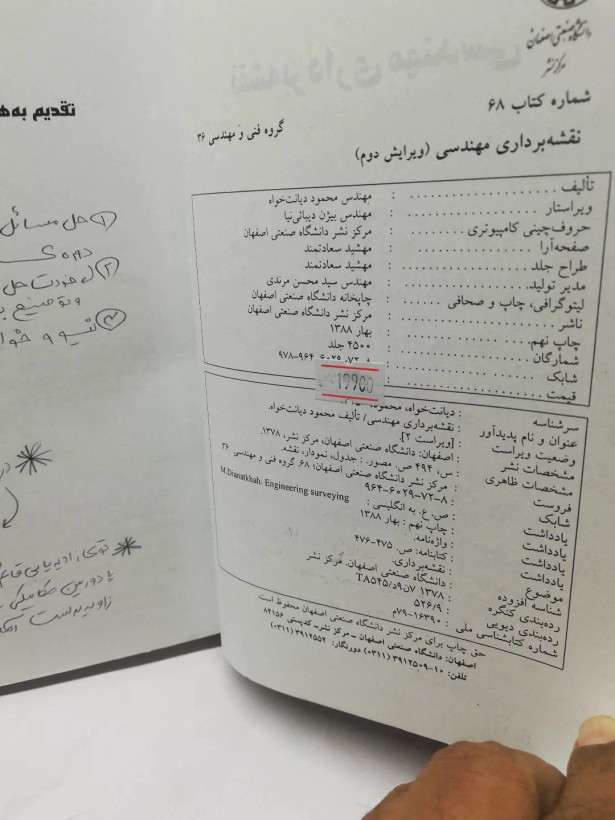 دانشگاه صنعتی اصفهان
مرکز نشر
شماره کتاب ۶۸
گروه فنی و مهندسی ۳۶
نقشه‌برداری مهندسی (ویرایش دوم)
تألیف : مهندس محمود دیانت‌خواه
ویراستار : مهندس بیژن دیبائی‌نیا
حروف‌چینی کامپیوتری : مرکز نشر دانشگاه صنعتی اصفهان
صفحه‌آرا : مهشید سعادتمند
طراح جلد : مهشید سعادتمند
مدیر تولید : مهندس سید محسن مرندی
لیتوگرافی، چاپ و صحافی : چاپخانه دانشگاه صنعتی اصفهان
ناشر : مرکز نشر دانشگاه صنعتی اصفهان
چاپ نهم : بهار ۱۳۸۸
شمارگان : ۴۵۰۰ جلد
شابک : ۹۷۸-۹۶۴-۶۰۲۹-۷۲-۸
قیمت : 19900
سرشناسه : دیانت‌خواه، محمود،
عنوان و نام پدیدآور : نقشه‌برداری مهندسی/ تألیف محمود دیانت‌خواه.
وضعیت ویراست : [ویراست ۲].
مشخصات نشر : اصفهان: دانشگاه صنعتی اصفهان، مرکز نشر، ۱۳۷۸.
مشخصات ظاهری : س، ۴۹۴ ص. مصور. : جدول، نمودار، نقشه.
فروست : مرکز نشر دانشگاه صنعتی اصفهان؛ ۶۸. گروه فنی و مهندسی ۳۶
شابک : ۹۶۴-۶۰۲۹-۷۲-۸
یادداشت : ص. ع. به انگلیسی : M.Dianatkhah. Engineering surveying
یادداشت : چاپ نهم : بهار ۱۳۸۸
یادداشت : واژه‌نامه.
یادداشت : کتابنامه: ص. ۴۷۵-۴۷۶
موضوع : نقشه‌برداری.
شناسه افزوده : دانشگاه صنعتی اصفهان. مرکز نشر
رده‌بندی کنگره : ۱۳۷۸ ۷ن۹د/TA۵۴۵
رده‌بندی دیویی : ۵۲۶/۹
شماره کتابشناسی ملی : ۱۶۳۹۰-۷۹م
حق چاپ برای مرکز نشر دانشگاه صنعتی اصفهان محفوظ است
اصفهان: دانشگاه صنعتی اصفهان - مرکز نشر- کدپستی ۸۴۱۵۶
تلفن: ۱۰-۳۹۱۲۵۰۹ (۰۳۱۱) دورنگار: ۳۹۱۲۵۵۲ (۰۳۱۱)
تقدیم به
۱ حل مسائل